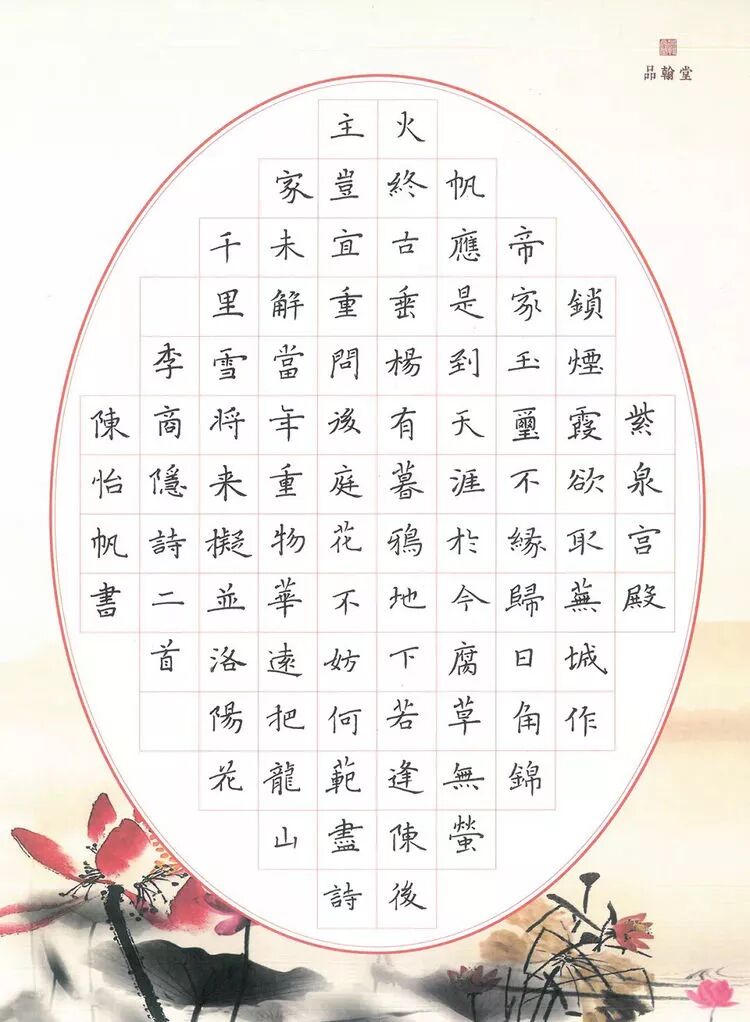 品翰堂
紫泉宫殿
鎖煙霞欲取蕪城作
帝家玉璽不緣歸日角錦
帆應是到天涯於今腐草無螢
火終古垂楊有暮鴉地下若逢陳後
主豈宜重問後庭花不妨何範盡詩
家未解當年重物華遠把龍山
千里雪將来擬並洛陽花
李商隱詩二首
陳怡帆書